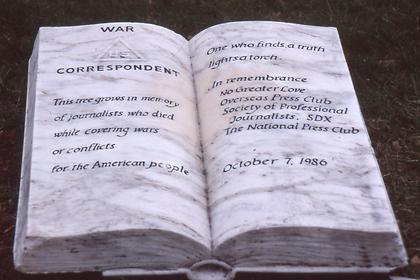 WAR
CORRESPONDENT
This tree grows in memory
of journalists who died
while covering wars
or conflicts
for the American people
One who finds a truth
lights a torch.
In remembrance
No Greater Cove
Overseas Press Club
Society of Professional
Journalists, SDX
The National Press Club
October 7, 1986